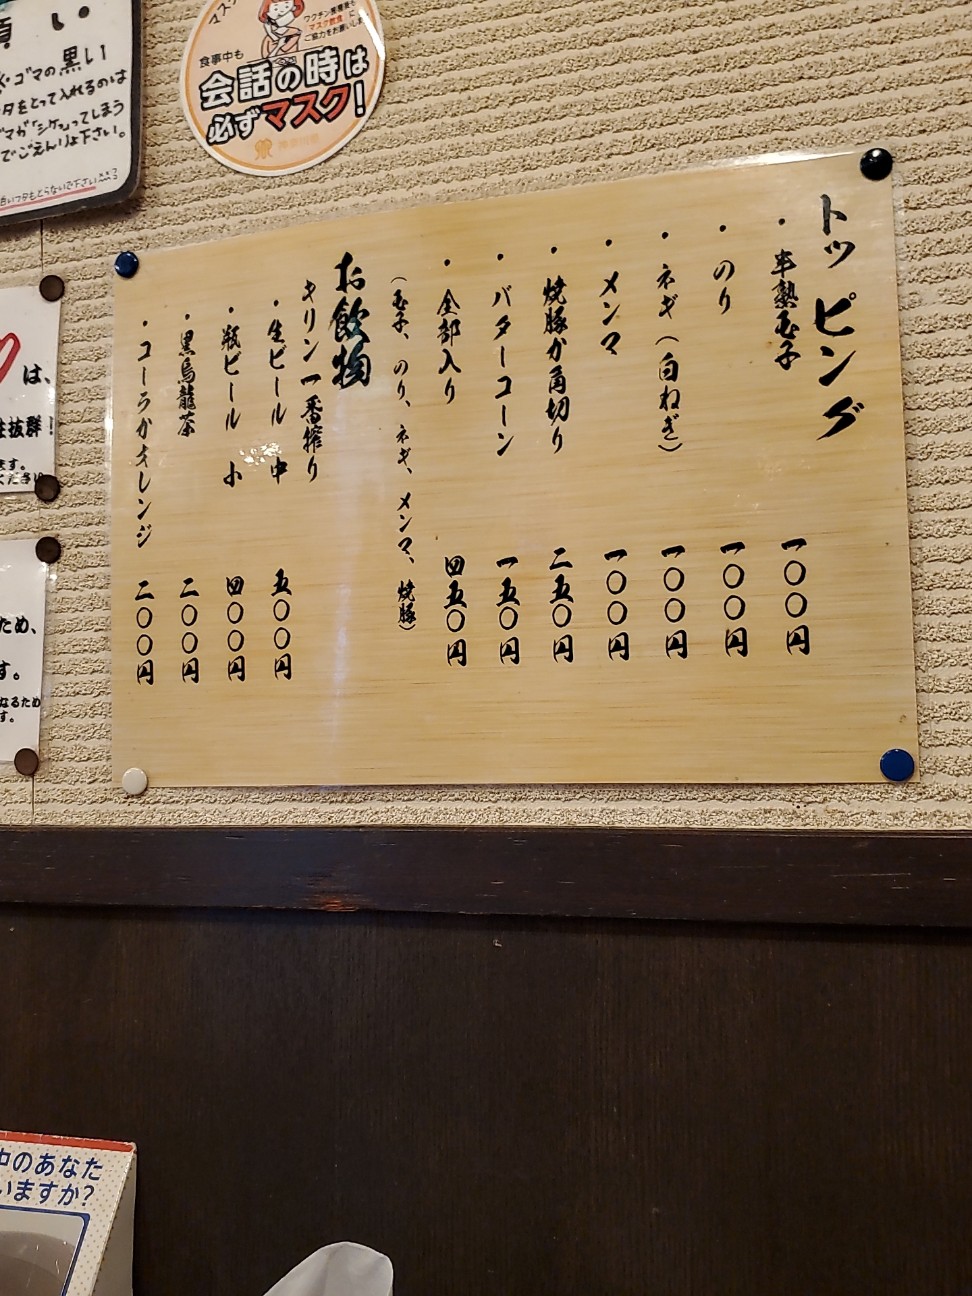 トッピング
・半熟玉子 一〇〇円
・のり 一〇〇円
・ネギ（白ねぎ） 一〇〇円
・メンマ 一〇〇円
・焼豚か角切り 二五〇円
・バターコーン 一五〇円
・全部入り 四五〇円
（玉子、のり、ネギ、メンマ、焼豚）
お飲物
キリン一番搾り
・生ビール 中 五〇〇円
・瓶ビール 小 四〇〇円
・黒烏龍茶 二〇〇円
・コーラかオレンジ 二〇〇円
食事中も
会話の時は
必ずマスク!
い
ゴマの黒い
タをとって入れるのは
マがシケってしまう
でごえんりょ下さい。
は、
抜群!
ます。
ください
ため、
す。
なるため
す。
中のあなた
いますか?